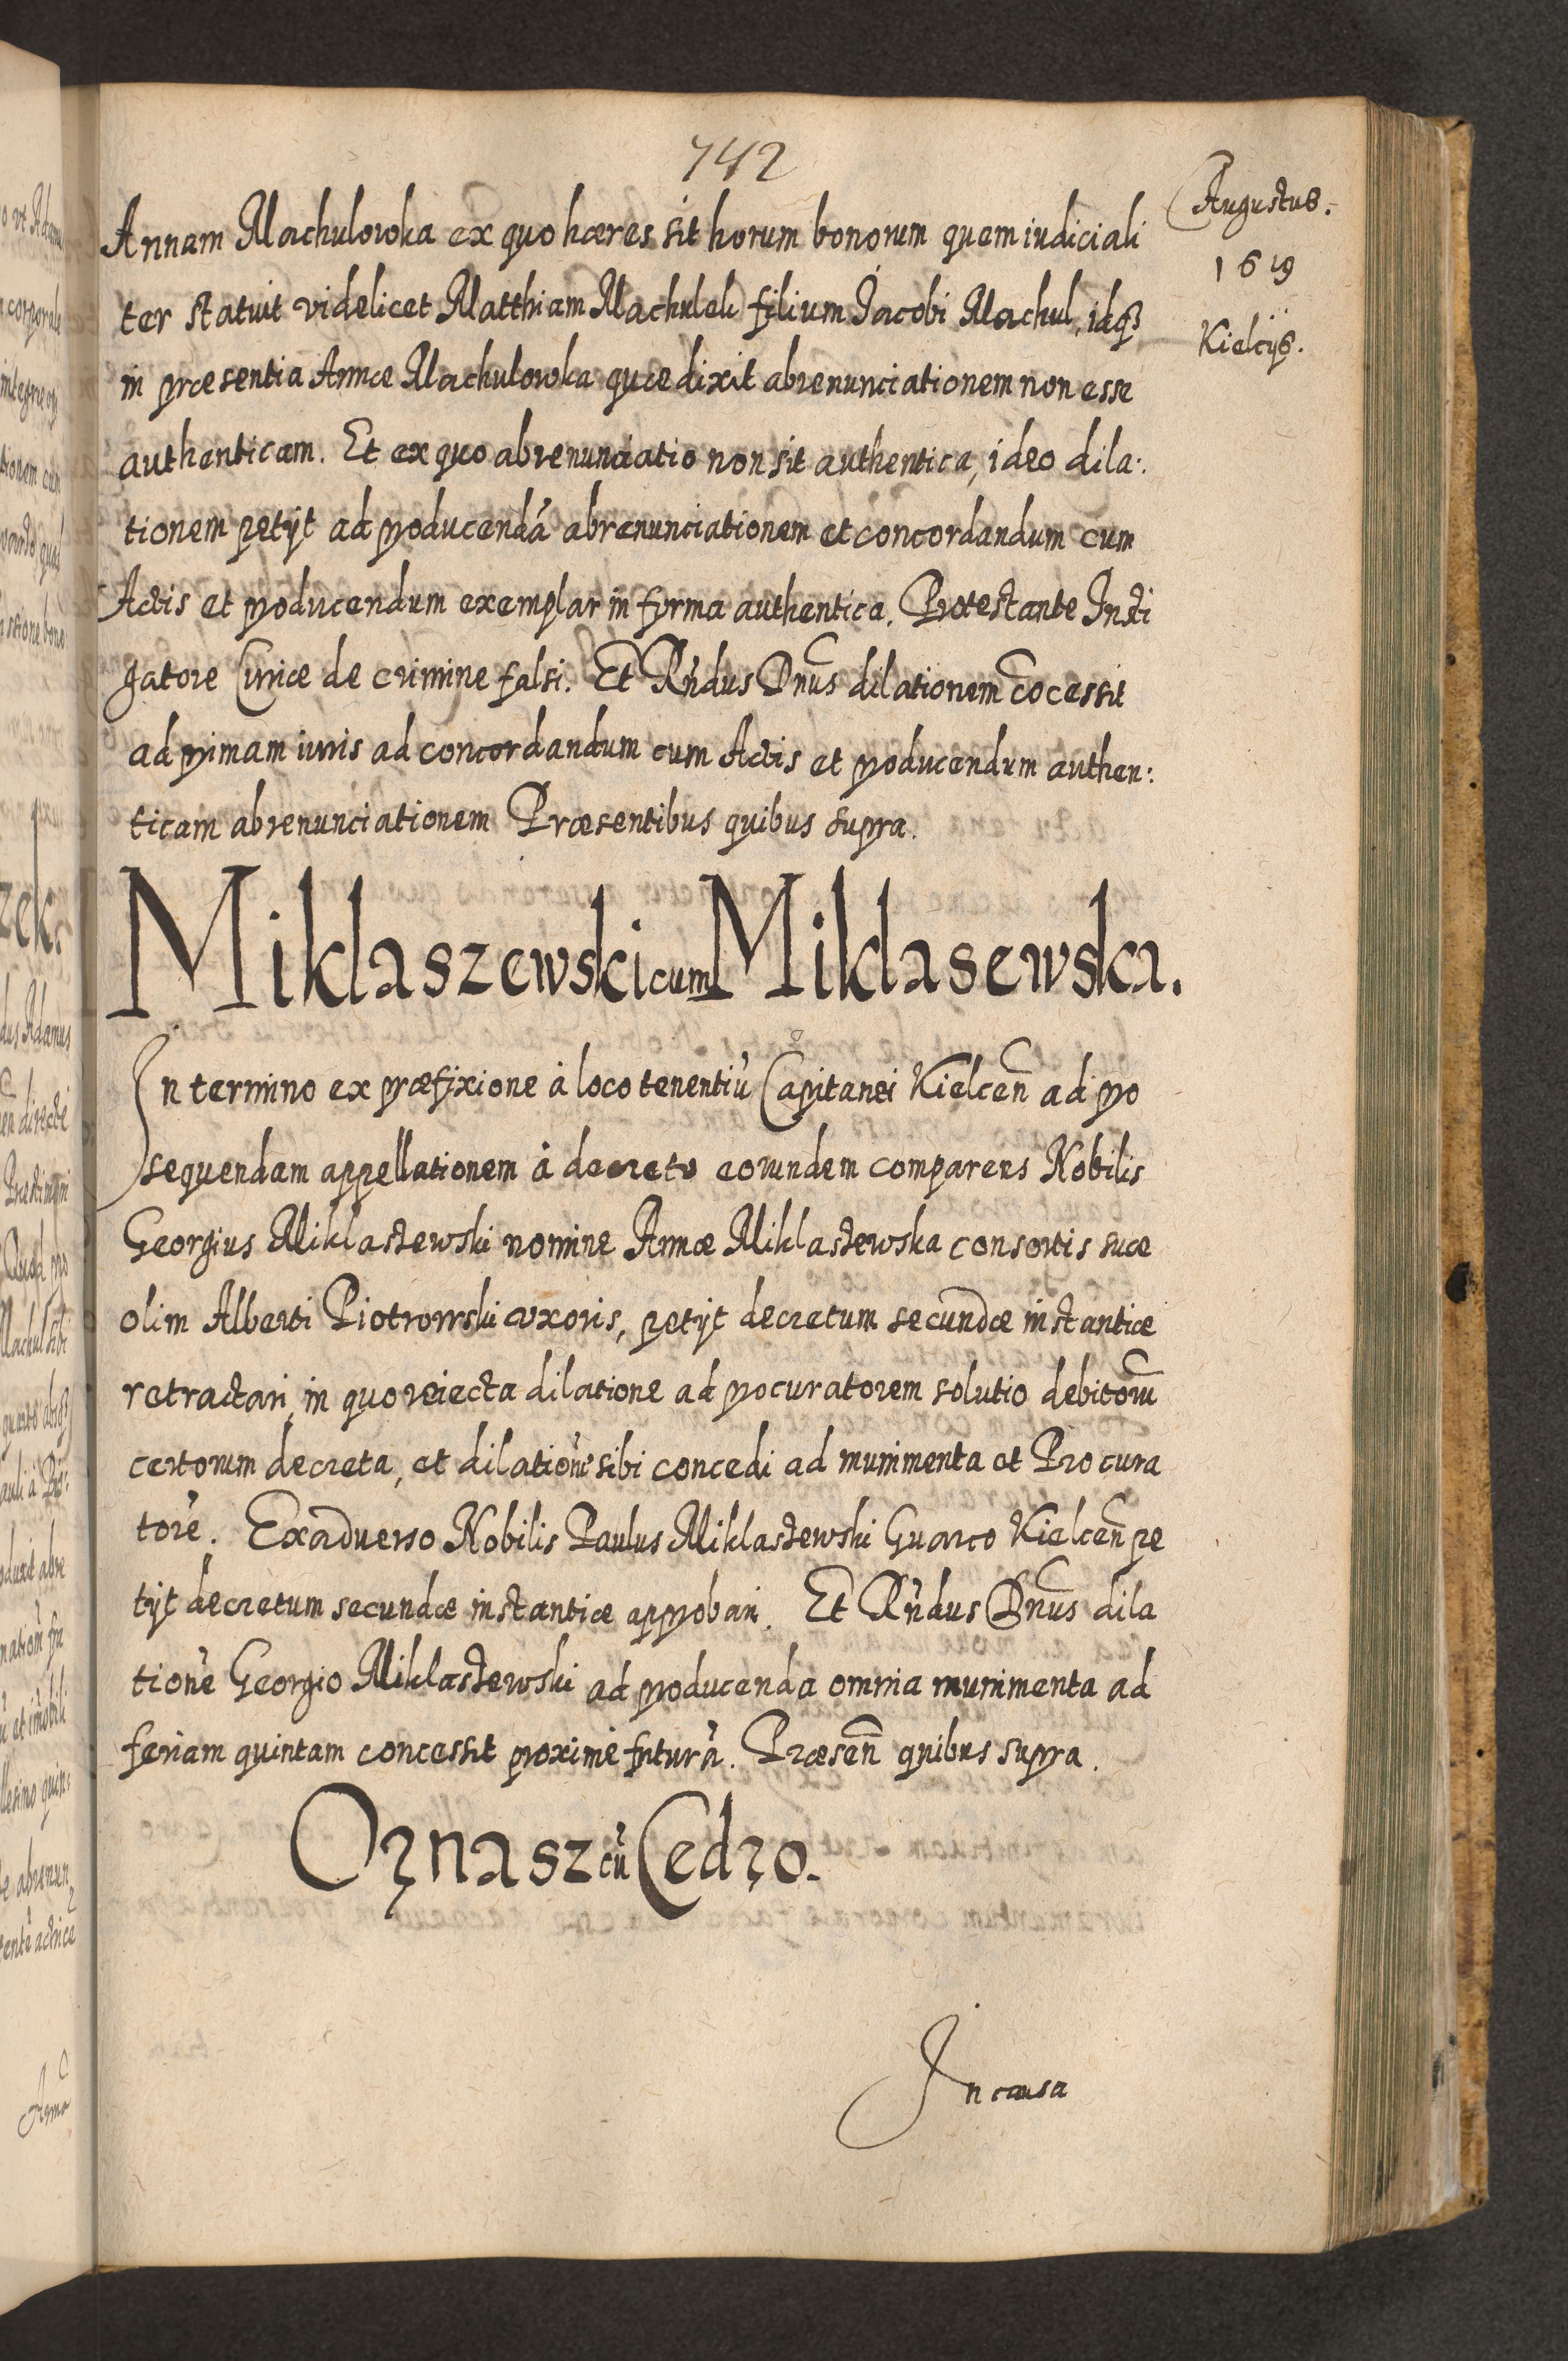 742
Augustus.
1619
Kielcijs.
Annam Machulowka ex quo hæres sit horum bonorum quem iudiciali
ter statuit videlicet Matthiam Machulek filium Jacobi Machul, idq3
in præsentia Annæ Machulowka quæ dixit abrenunciationem non esse
authenticam. Et ex quo abrenunciatio non sit authentica, ideo dila:
tionem petijt ad producendã abrenunciationem et concordandum cum
Actis et producendum exemplar in forma authentica. Protestante Insti
gatore Curiæ de crimine falsi. Et Rñdus Dnus dilationem cõcessit
ad primam iuris ad concordandum cum Actis et producendum authen:
ticam abrenunciationem Præsentibus quibus supra.
Miklaszewski cum Miklasewska.
In termino ex præfixione à loco tenentiũ Capitanei Kielcen̄ ad pro
sequendam appellationem à decreto eorundem comparens Nobilis
Georgius Miklaszewski nomine Annæ Miklaszewska consortis suæ
olim Alberti Piotrowski uxoris, petijt decretum secundæ instantiæ
retractari, in quo reiecta dilatione ad procuratorem solutio debitorũ
certorum decreta, et dilationẽ sibi concedi ad munimenta et Procura
torẽ. Ex adverso Nobilis Paulus Miklaszewski Guarco Kielcen̄ pe
tijt decretum secundæ instantiæ approbari. Et Rñdus Dnus dila
tionẽ Georgio Miklaszewski ad producenda omnia munimenta ad
feriam quintam concessit proximè futurã. Præsen̄ quibus supra.
Oznasz cũ Cedzo.
In causa